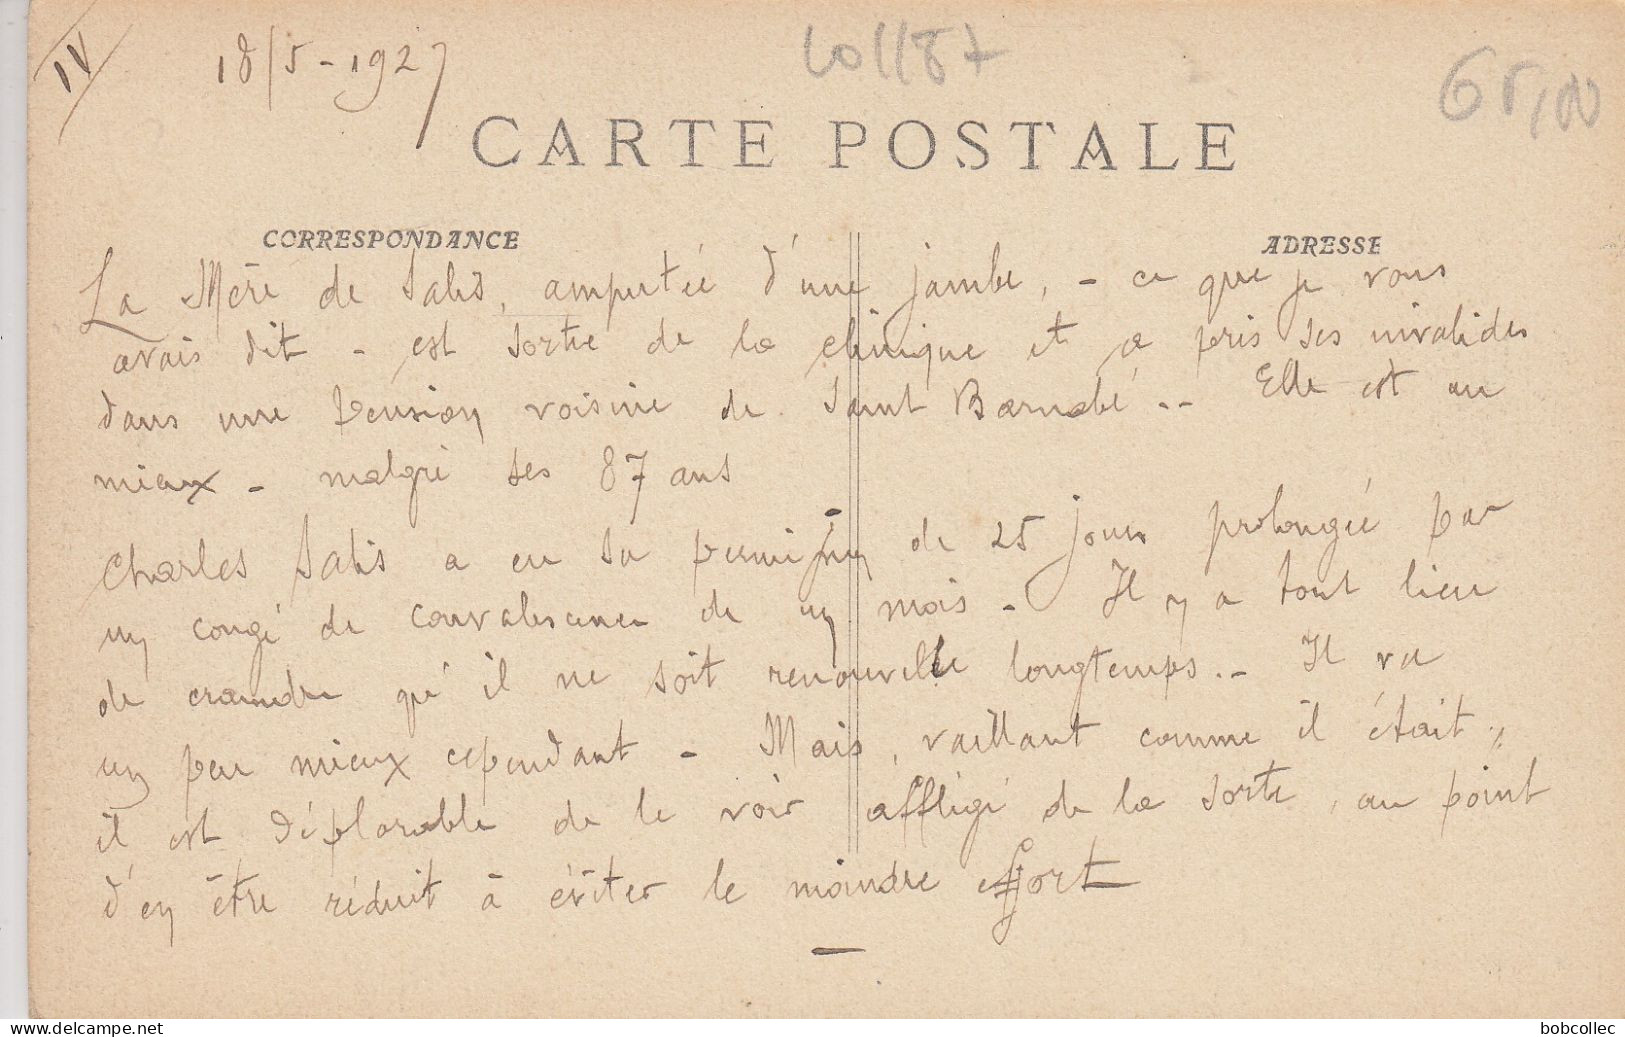 IV
18/5-1927
65,00
CARTE POSTALE
CORRESPONDANCE
ADRESSE
La Mère de Salis, amputée d'une jambe, - ce que je vous
avais dit - est sortie de la clinique et a pris ses invalides
dans une pension voisine de Saint Barnabé.. Elle est au
mieux - malgré ses 87 ans
Charles Salis a eu sa permission de 25 jours prolongée par
un congé de convalescence de un mois - Il y a tout lieu
de craindre qu'il ne soit renouvelle longtemps.. Il va
un peu mieux cependant - Mais, vaillant comme il était,
il est déplorable de le voir affligé de la sorte, au point
d'en être réduit à éviter le moindre effort
-
bobcollec